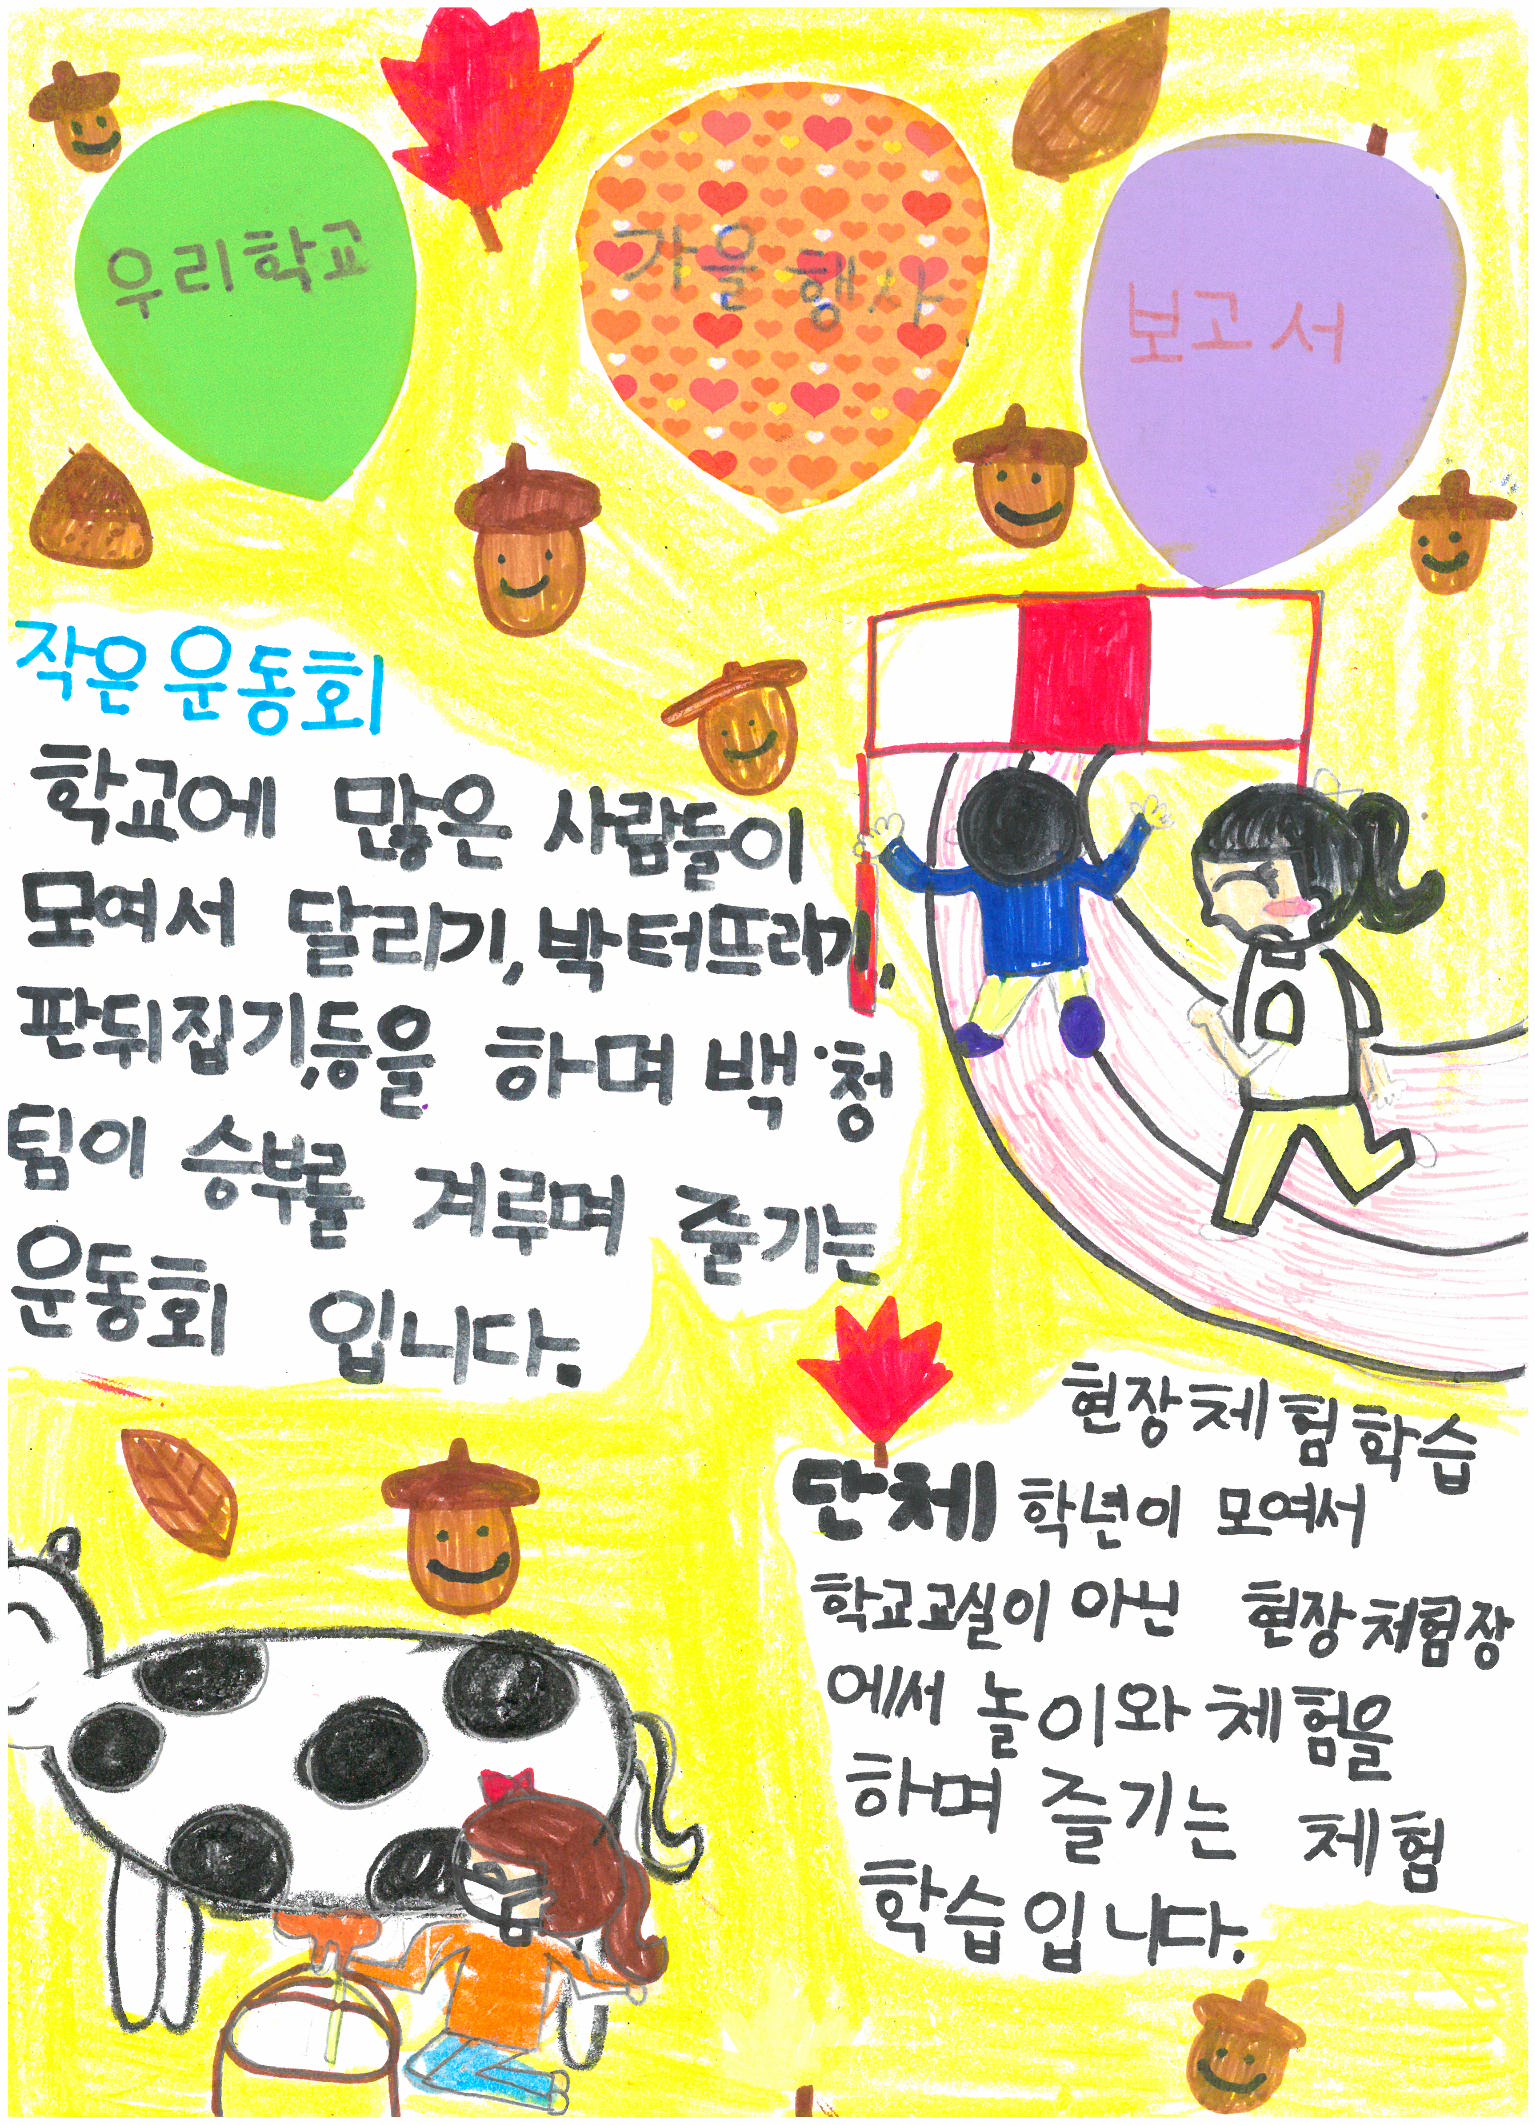 우리학교
가을 행사
보고서
작은 운동회
학교에 많은 사람들이
모여서 달리기, 박터뜨리기,
판뒤집기,등을 하며 백·청
팀이 승부를 겨루며 즐기는
운동회 입니다.
현장체험학습
단체 학년이 모여서
학교교실이 아닌 현장체험장
에서 놀이와 체험을
하며 즐기는 체험
학습입니다.